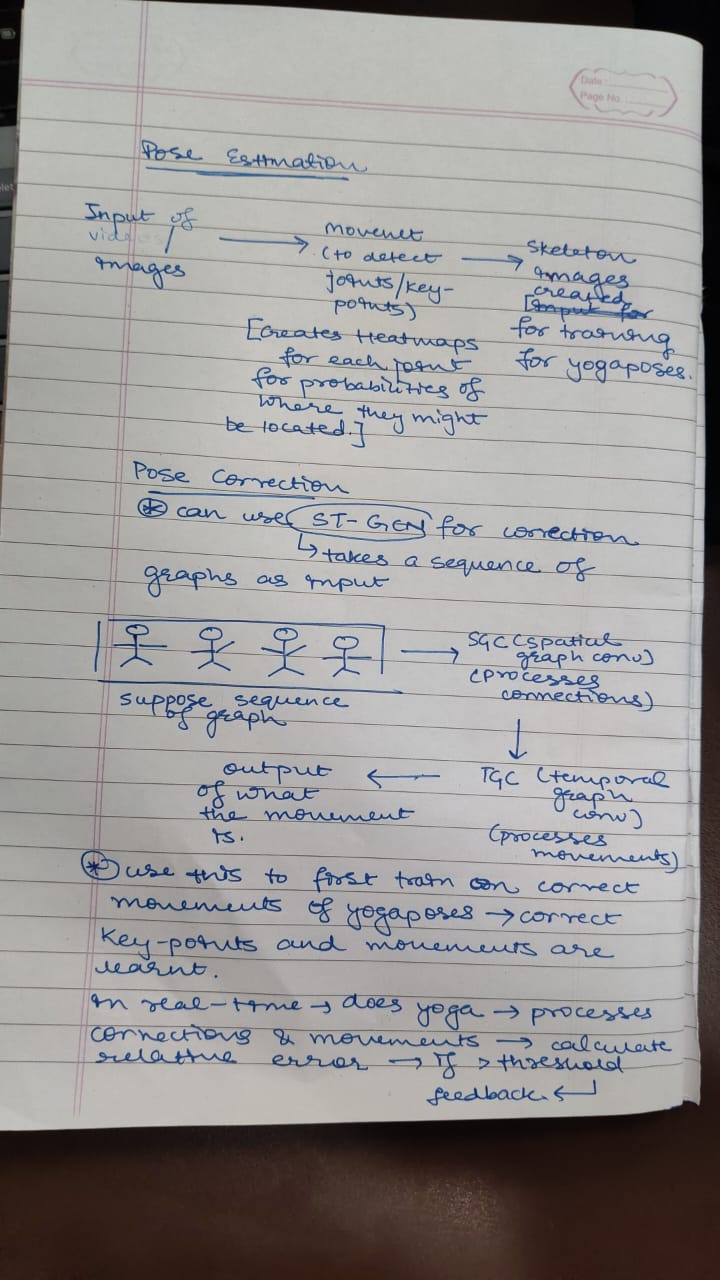 Date:
Page No.
Pose Estimation
Input of
video/
Images
Movenet
(to detect
joints/key-
points)
[creates Heatmaps
for each joint
for probabilities of
where they might
be located.]
Skeleton
Images
created
[Input for
for training
for yogaposes.
Pose Correction
* can use ST-GCN for correction
↳ takes a sequence of
graphs as input
suppose sequence
of graph
→ SGC (spatial
graph conv)
(processes
connections)
TGC (temporal
graph
conv)
(processes
movements)
output
of what
the movement
is.
* use this to first train on correct
movements of yogaposes → correct
key-points and movements are
learnt.
In real-time → does yoga → processes
connections & movements → calculate
relative error → If > threshold
feedback. ↵